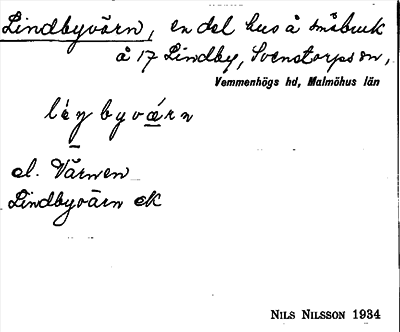 Lindbyvärn, en del hus å småbruk
å 17 Lindby, Svenstorps sn,
Vemmenhögs hd, Malmöhus län
el. Värnen
Lindbyvärn ek
NILS NILSSON 1934